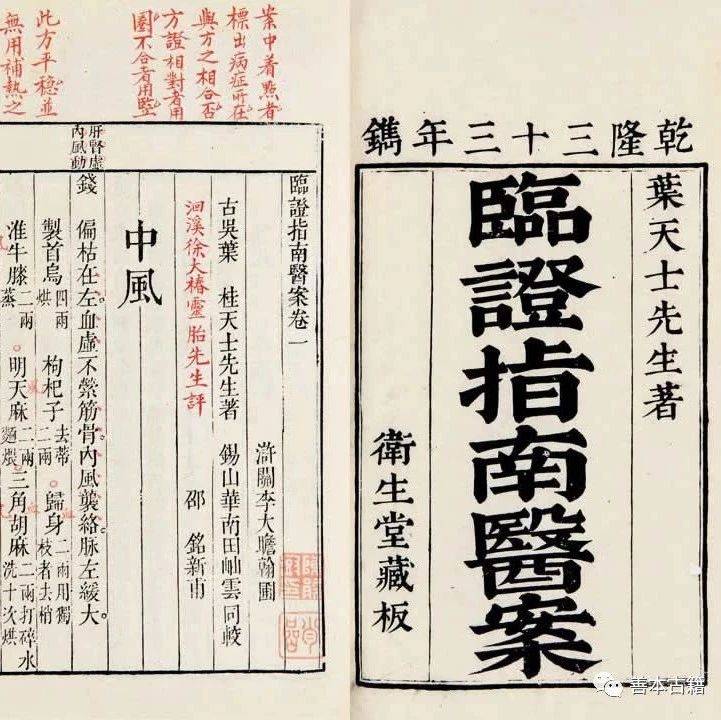 乾隆三十三年鐫
葉天士先生著
臨證指南醫案
衛生堂藏板
案中着㸃者
標出病症所在
與方之相合否
方證相對者用
圈不合者用竪
此方平穏並
無用補熱之
臨證指南醫案卷一
滸關李大瞻翰圃
古吳葉 桂天士先生著 錫山華南田岫雲同較
邵 銘新甫
洄溪徐大椿靈胎先生評
中風
肝腎虛
內風動
錢 偏枯在左。血虛不縈筋骨。內風襲絡。脉左緩大。
製首烏四兩烘 枸杞子去蒂二兩 歸身二兩用獨枝者去梢
淮牛膝二兩蒸 明天麻二兩麵煨 三角胡麻二兩打碎水洗十次烘
善本古籍